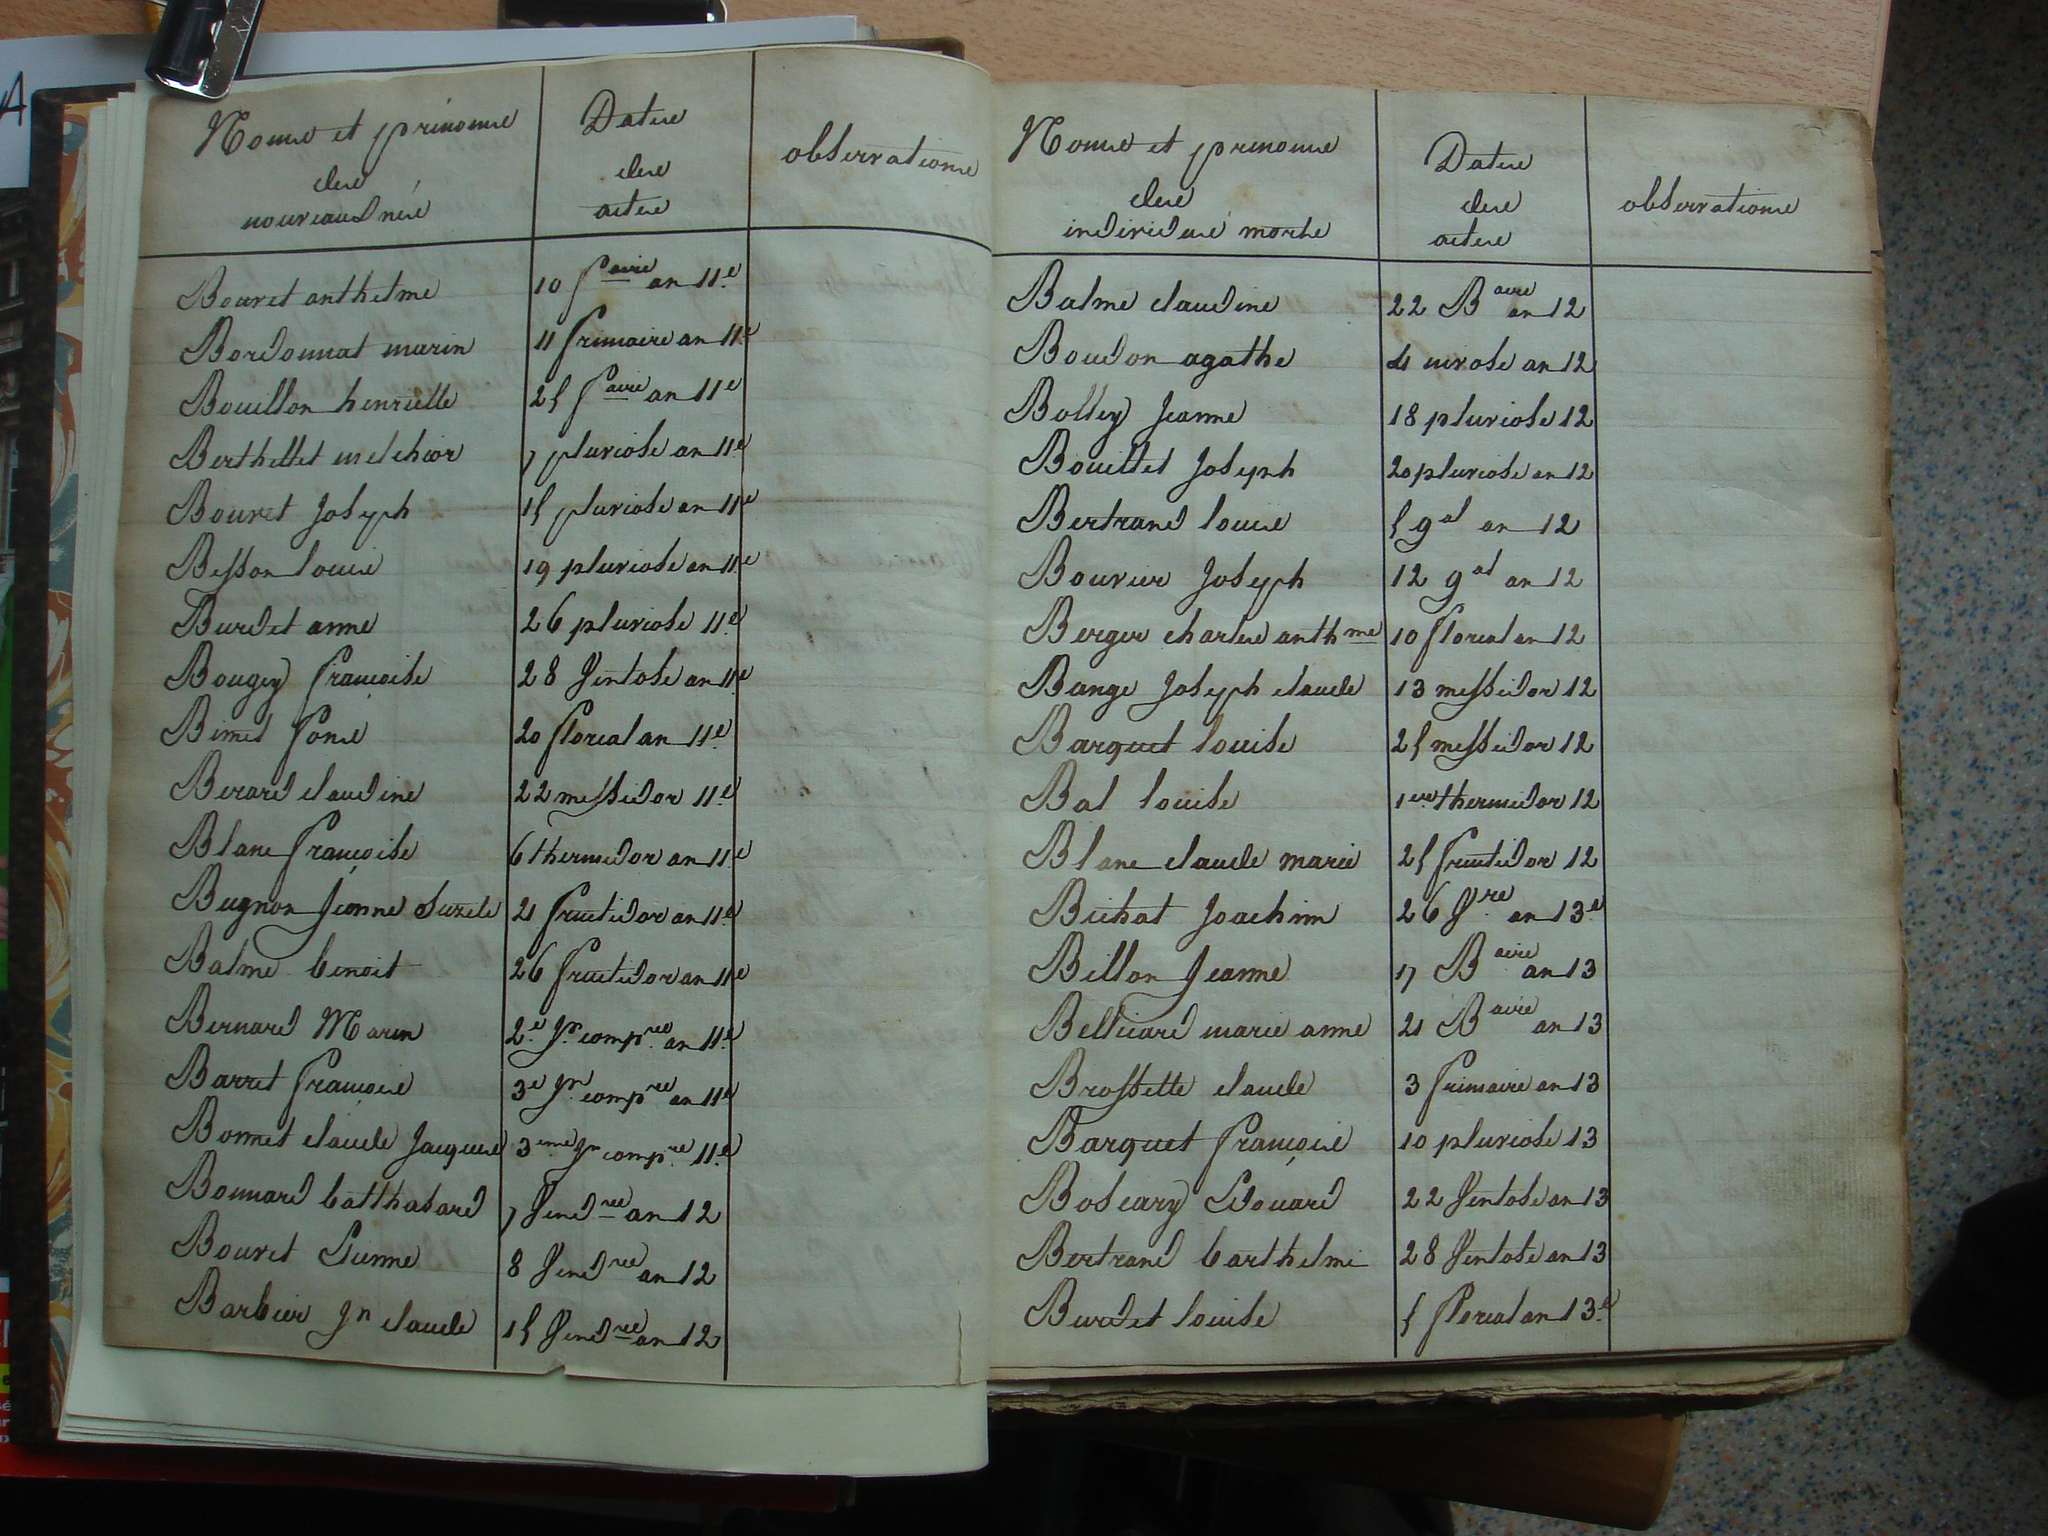 Noms et prénoms
des
nouveaud nés
Dates
des
actes
observations
Bouvet anthelme 10 f.aire an 11.e
Bordonnat marin 11 frimaire an 11.e
Bouillon henriette 25 f.aire an 11.e
Berthellet melchior 7 pluviose an 11.e
Bouvet Joseph 15 pluviose an 11.e
Besson louis 19 pluviose an 11.e
Burdet anne 26 pluviose 11.e
Bougey françoise 28 Ventose an 11.e
Bimet Pons 20 floreal an 11.e
Berard claudine 22 messidor 11.e
Blanc françoise 6 thermidor an 11.e
Bugnon Jeanne Suzete 21 fructidor an 11.e
Balme benoit 26 fructidor an 11.e
Bernard Marin 2.e Jr. comp.re an 11.e
Barret françois 3e Jr. comp.re an 11.e
Bonnet claude Jacques 3eme Jr comp.re 11.e
Bonnard balthasard 7 Vend.re an 12
Bouvet Etienne 8 Vend.re an 12
Barbier Jn claude 15 Vend.re an 12
Noms et prenoms
des
individus morts
Dates
des
actes
observations
Balme claudine 22 B.aire an 12
Boudon agathe 4 nivose an 12
Bolley Jeanne 18 pluviose 12
Bouillet Joseph 20 pluviose an 12
Bertrand louis 5 g.al an 12
Bouvier Joseph 12 g.al an 12
Berger charles anth.me 10 floreal an 12
Bange Joseph claude 13 messidor 12
Barquet louise 25 messidor 12
Bal louise 1er thermidor 12
Blanc claude marie 25 fructidor 12
Bichat Joachim 26 V.re an 13.e
Billon Jeanne 17 B.aire an 13
Bellicard marie anne 21 B.aire an 13
Brossette claude 3 frimaire an 13
Barquet françois 10 pluviose 13
Boscary Edouard 22 Ventose an 13
Bertrand barthelmi 28 Ventose an 13
Burdet louise 5 floreal an 13.e